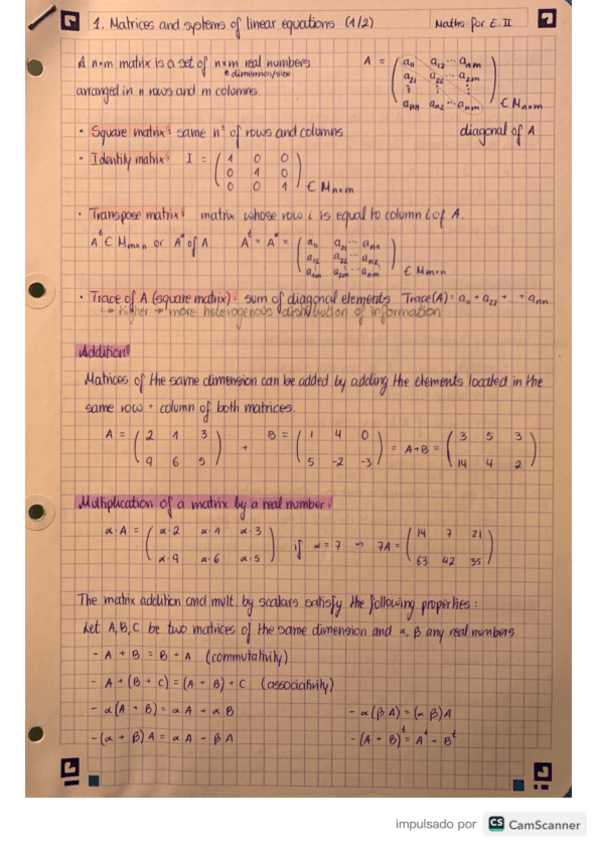 1. Matrices and systems of linear equations (1/2)
Maths for E. II
A n×m matrix is a set of n×m real numbers
* dimension/size
arranged in n rows and m columns.
A = ( a11 a12 ... anm
a21 a22 ... a2m
⋮ ⋮ ⋮
ann an2 ... anm ) ∈ Mn×m
diagonal of A
• Square matrix: same nº of rows and columns
• Identity matrix: I = ( 1 0 0
0 1 0
0 0 1 ) ∈ Mn×m
• Transpose matrix: matrix whose row i is equal to column i of A.
A^t ∈ Mm×n or A* of A A^t = A* = ( a11 a21 ... an1
a12 a22 ... an2
a1m a2m ... anm ) ∈ Mm×n
• Trace of A (square matrix): sum of diagonal elements Trace(A) = a11 + a22 + + ann
↳ higher → more heterogenous distribution of information
Addition:
Matrices of the same dimension can be added by adding the elements located in the
same row + column of both matrices.
A = ( 2 1 3
9 6 5 ) + B = ( 1 4 0
5 -2 -3 ) = A+B = ( 3 5 3
14 4 2 )
Multiplication of a matrix by a real number:
α·A = ( α·2 α·1 α·3
α·9 α·6 α·5 ) if α = 7 → 7A = ( 14 7 21
63 42 35 )
The matrix addition and mult. by scalars satisfy the following properties:
Let A, B, C be two matrices of the same dimension and α, β any real numbers.
- A + B = B + A (commutativity)
- A + (B + C) = (A + B) + C (associativity)
- α(A + B) = αA + αB
- α(βA) = (αβ)A
- (α + β)A = αA + βA
- (A + B)^t = A^t + B^t
impulsado por CS CamScanner